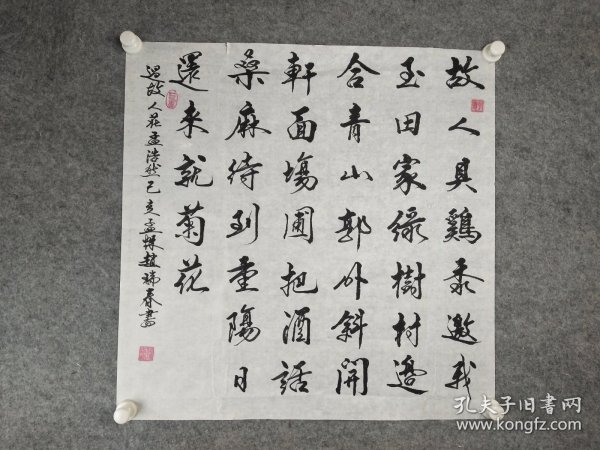 故人具鷄黍邀我
至田家緑樹村邊
合青山郭外斜開
軒面場圃把酒話
桑麻待到重陽日
還來就菊花
過故人莊孟浩然己亥孟秋趙瑞春書
孔夫子旧書网
www.kongfz.com